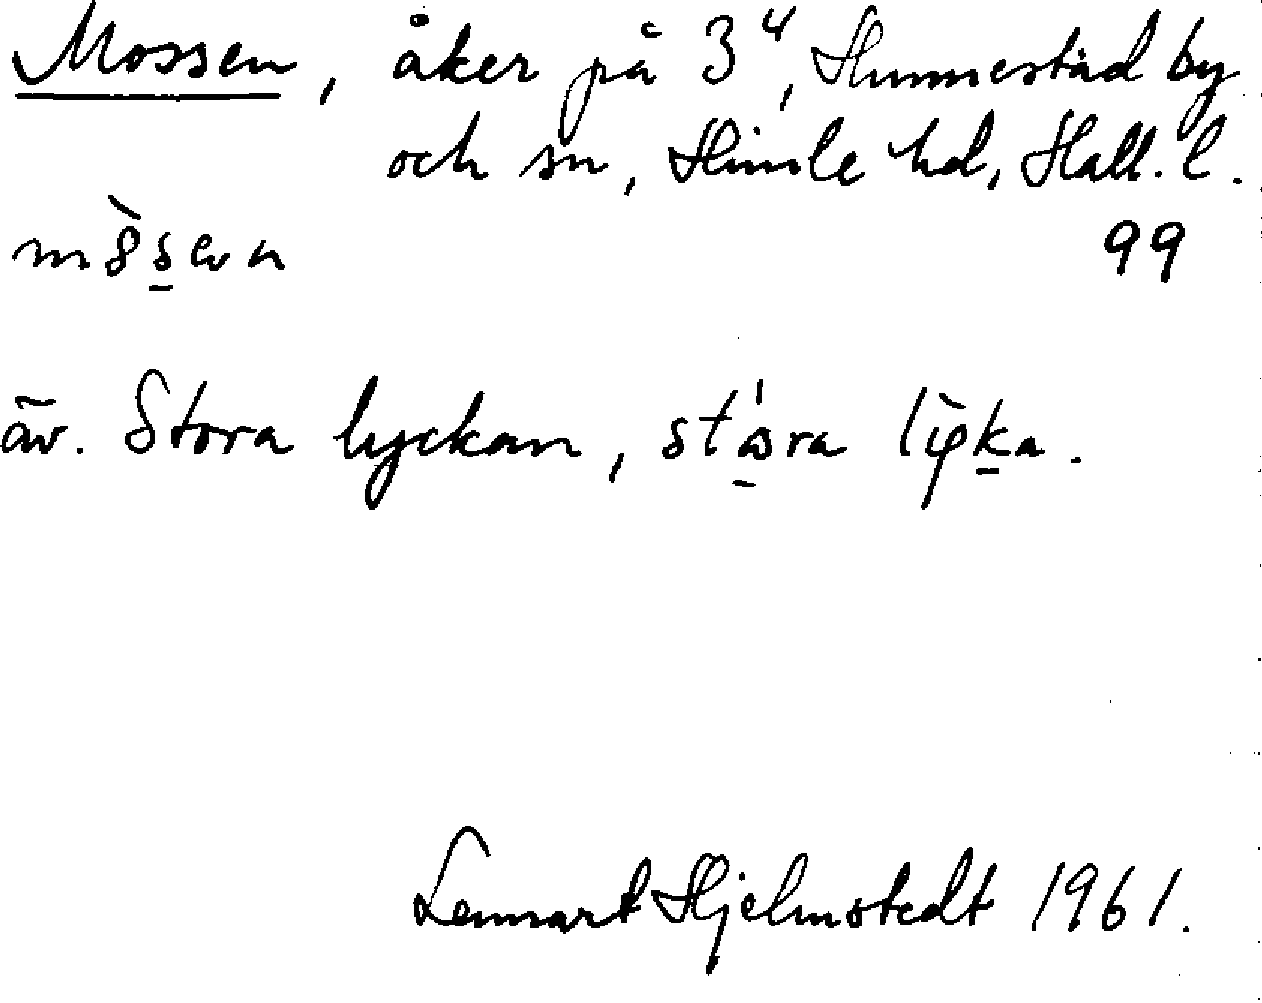 Mossen, åker på 3⁴, Hunnestad by
och sn, Himle hd, Hall. l.
99
äv. Stora lyckan,
Lennart Hjelmstedt 1961.